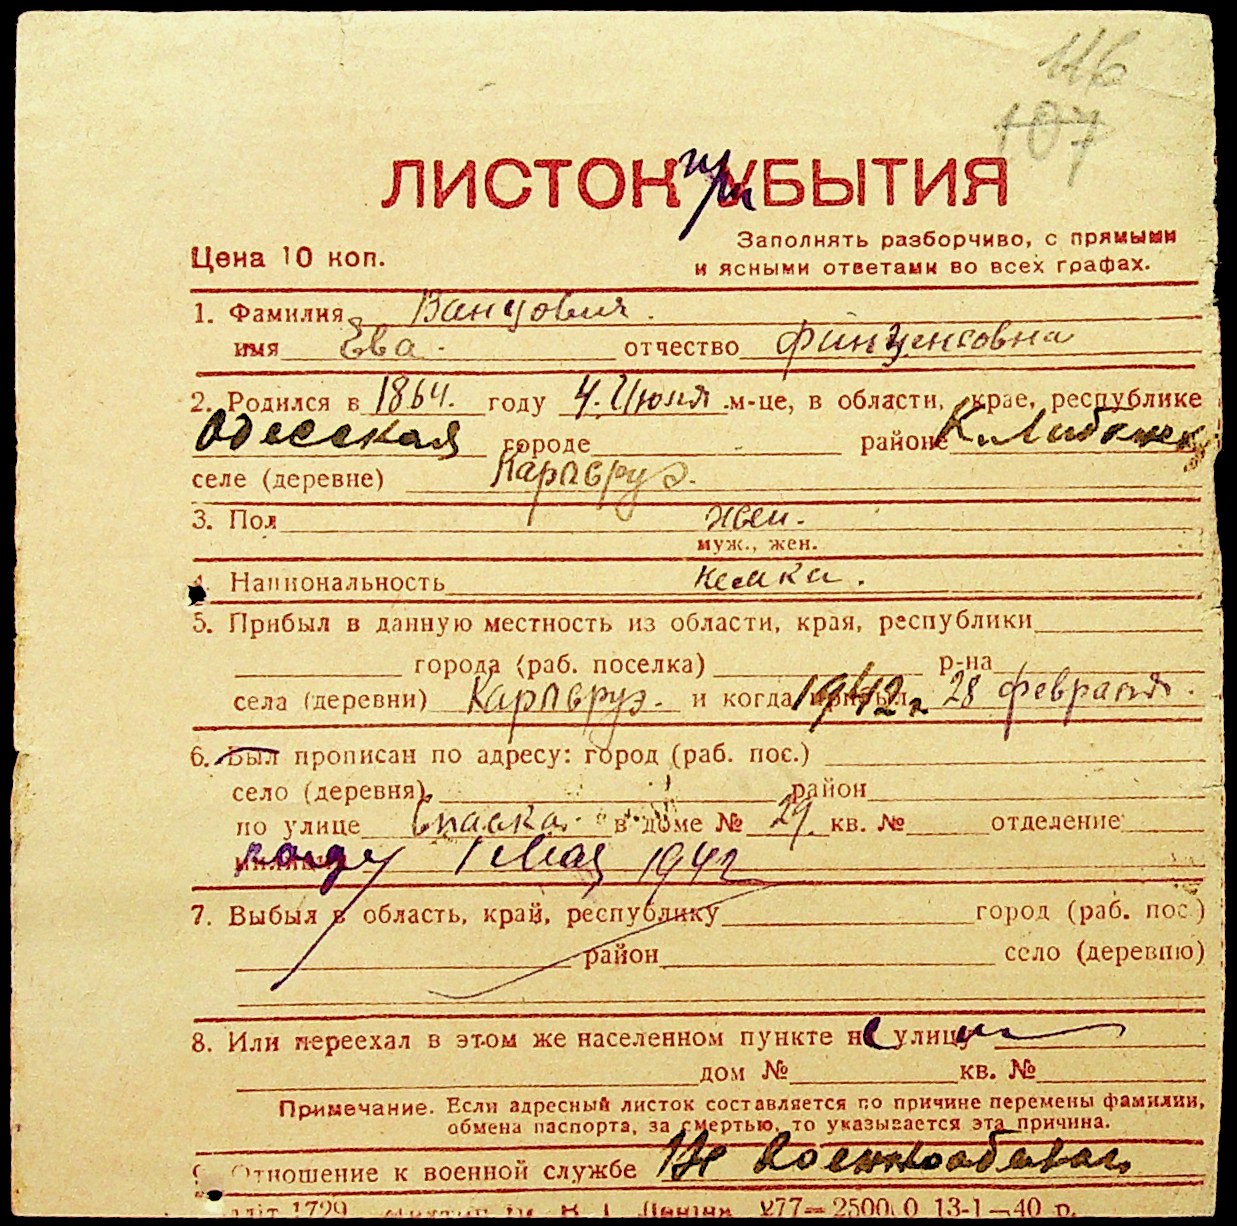 116
107
ЛИСТОК при УБЫТИЯ
Цена 10 коп.
Заполнять разборчиво, с прямыми
и ясными ответами во всех графах.
1. Фамилия
имя Ева. отчество
2. Родился в 1864. году 4. Июня м-це, в области, крае, республике
Одесская городе районе
селе (деревне) Карлсруэ.
3. Пол жен.
муж., жен.
4. Национальность немка.
5. Прибыл в данную местность из области, края, республики
города (раб. поселка) р-на
села (деревни) Карлсруэ. и когда прибыл 1942 г 28 февраля.
6. Был прописан по адресу: город (раб. пос.)
село (деревня) район
по улице Спаска. в доме № 29 кв. № отделение
милиции 1 Мая 1942
7. Выбыл в область, край, республику город (раб. пос.)
район село (деревню)
8. Или переехал в этом же населенном пункте с улицы
дом № кв. №
Примечание. Если адресный листок составляется по причине перемены фамилии,
обмена паспорта, за смертью, то указывается эта причина.
9. Отношение к военной службе Не военнообязан
1729 277—25000 13-1—40 р.